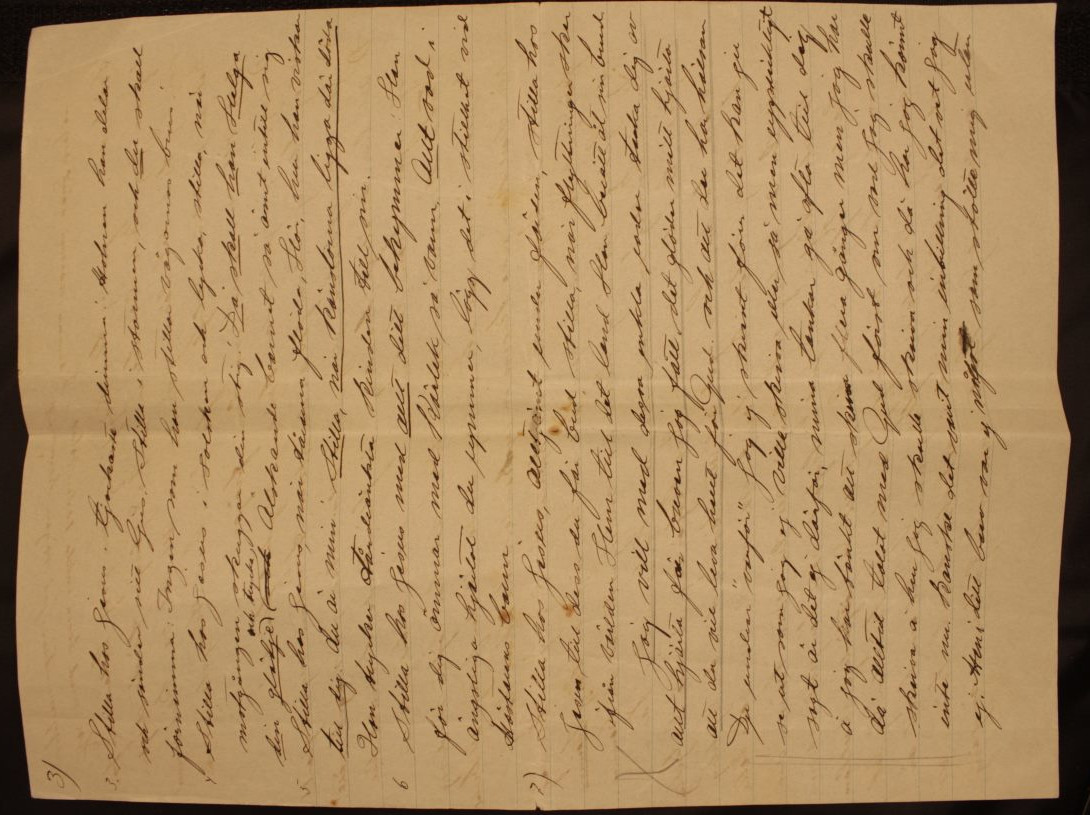 3)
3. Stilla hos Jesus. tjockaste dimma! Molnen han delar
och sänder sitt ljus. Stilla i stormen, och du skall
förnimma: Ingen som han stillar vågornas brus!
4 Stilla hos Jesus i solsken och lycka, stilla, när
motgången skuggar din stig! Då skall han Helga
din glädje (och trycka) Älskande barnet så ömt intill sig
5. Stilla hos Jesus, när tårarna flöda, Hör, hur han viskar
till dig: du är min! Stilla, när känslorna ligga där döda
Han trycker tårdränkta kinden till sin.
6 Stilla hos Jesus med allt ditt bekymmer! Han
för dig ömmar med Kärlek så varm, Allt vad i
ängsliga hjärtat du rymmer, lägg det i stillhet vid
Mästarens barm
7) Stilla hos Jesus, alltjämt under färden, stilla hos
Jesus, till dess du får bud, stilla, när flyttningen sker
ifrån världen Hem till det land Han berätt åt sin brud
Jag vill med dessa enkla rader tacka dig av
allt hjärta för breven jag fått, det gläder mitt hjärta
att du vill leva helt för Gud. och att du har hälsan
Du undrar "varför" jag ej skrivit förr det kan ju
se ut som jag ej ville skriva eller så men uppriktigt
sagt är det ej därför, mina tankar gå ofta till dig
å jag har tänkt att skriva flera gånger men jag har
då alltid talat med Gud först om vad jag skulle
skriva å hur jag skulle skriva och då har jag känt
inte nu. kanske det varit min inbillning det vet jag
ej. Men i ditt brev var ej något som stötte mig utan